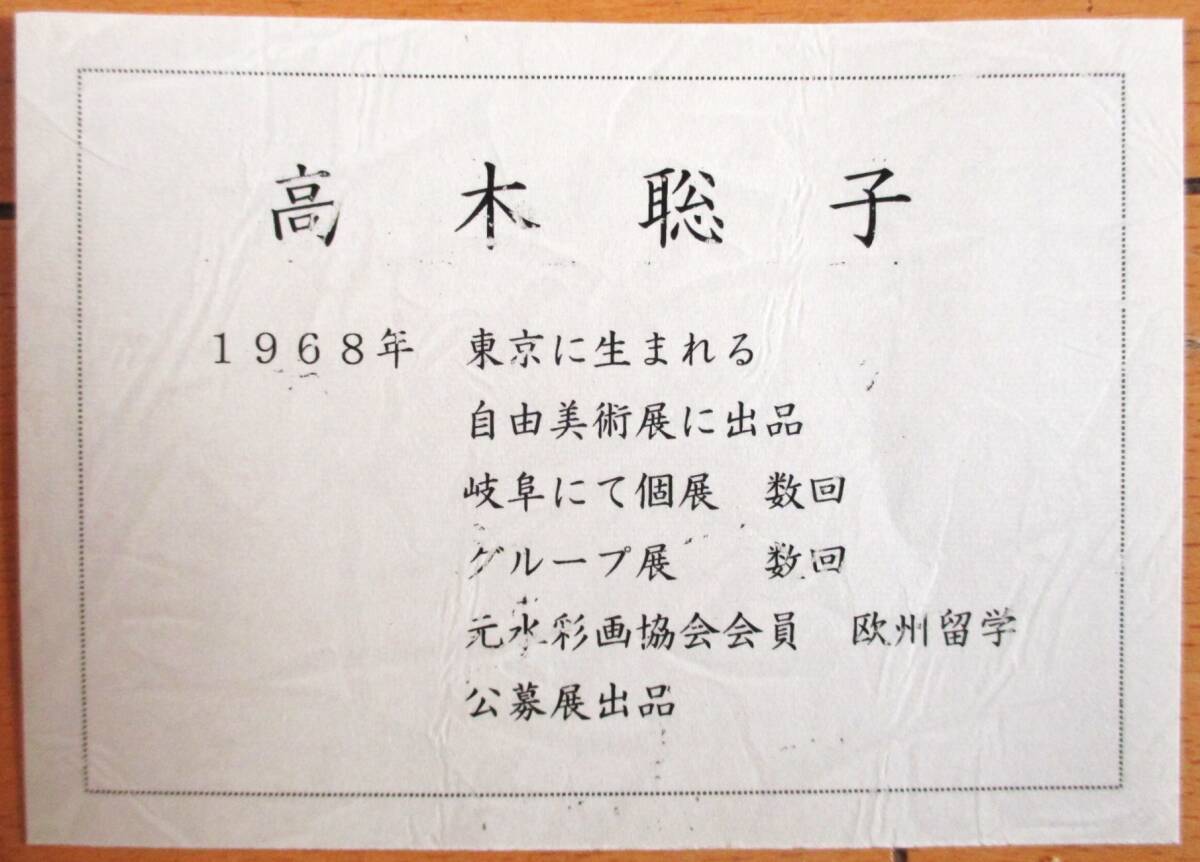 高木聡子
１９６８年　東京に生まれる
自由美術展に出品
岐阜にて個展　数回
グループ展　　数回
元水彩画協会会員　欧州留学
公募展出品